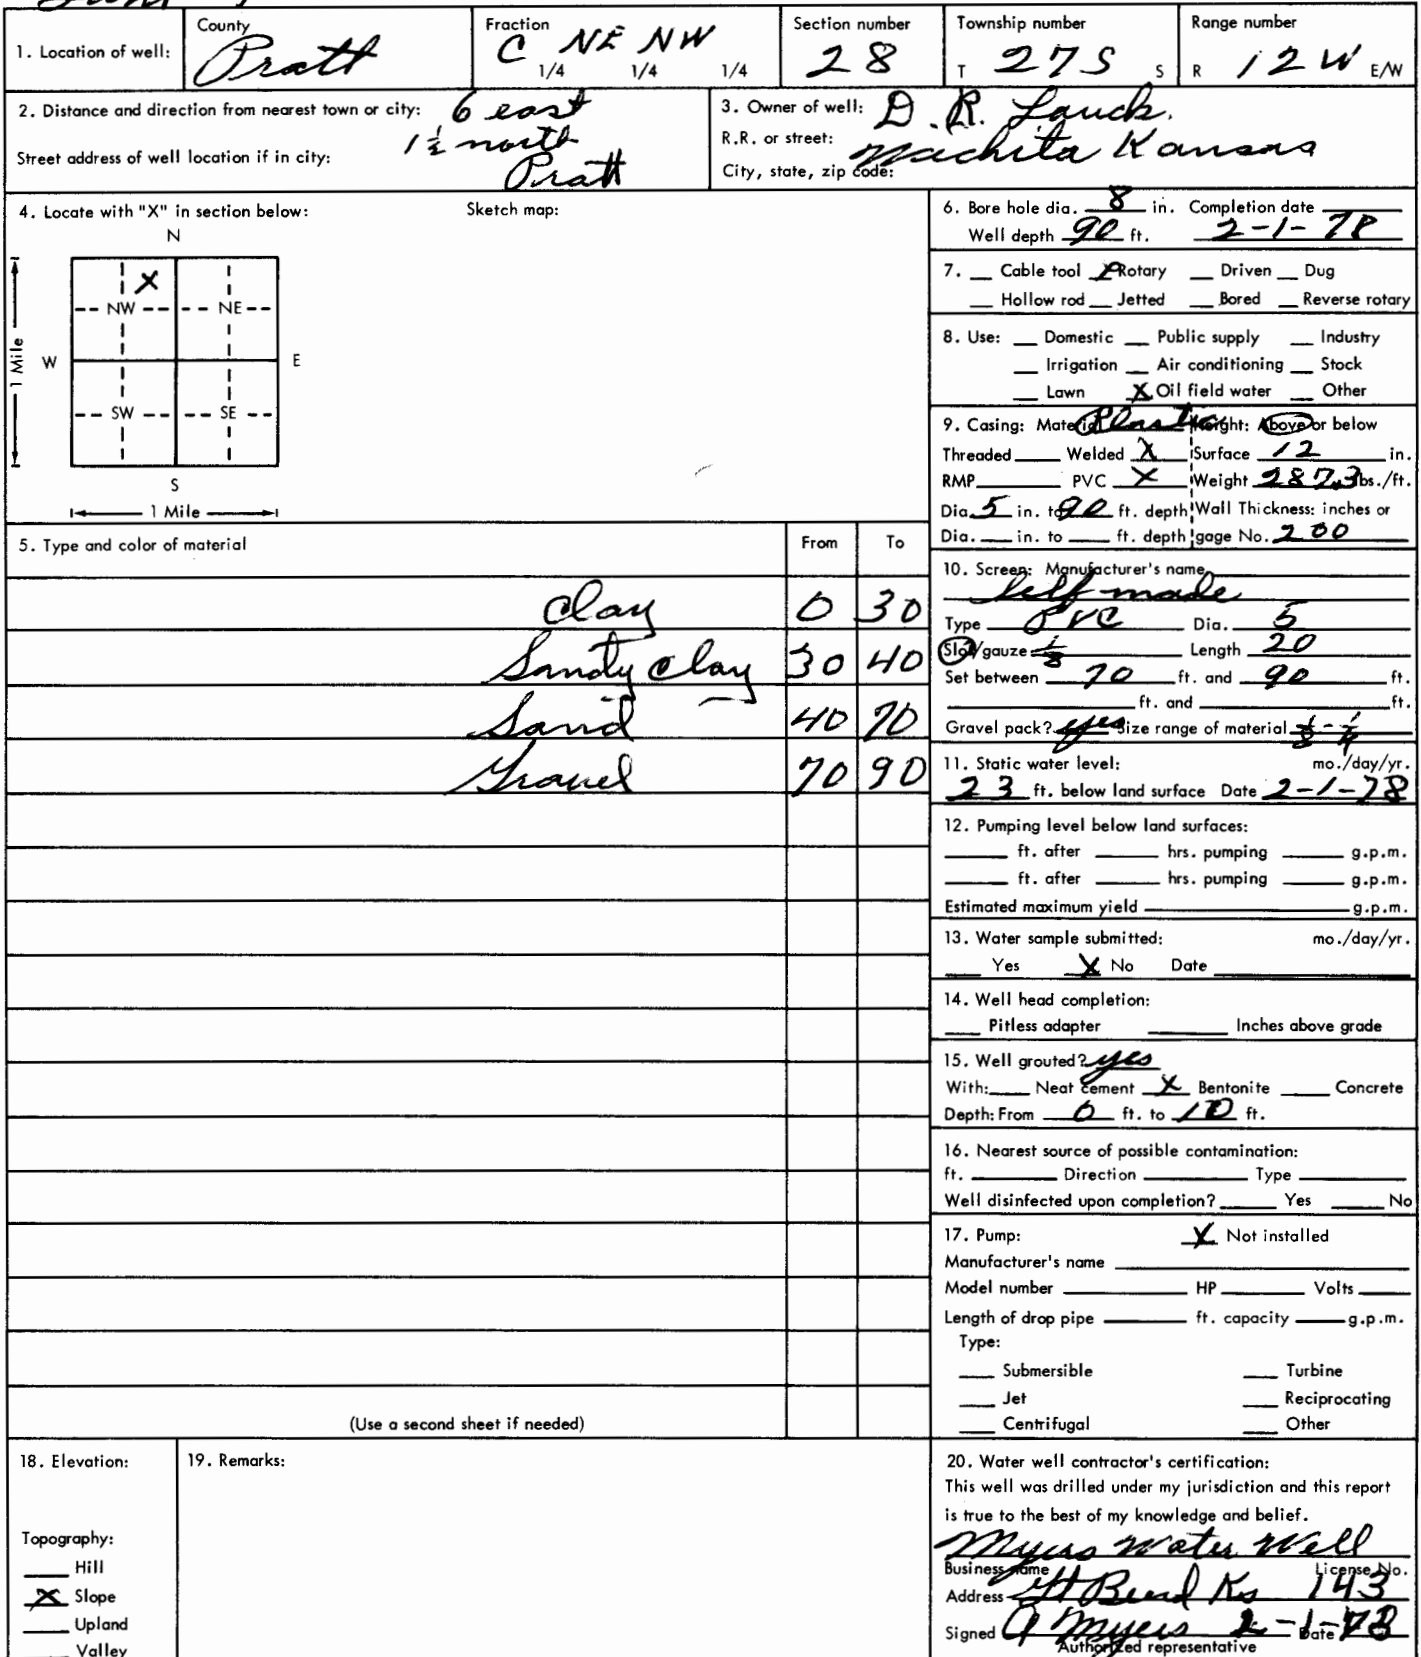 County Fraction Section number Township number Range number
1. Location of well: Pratt C NE NW 28 T 27S S R 12W E/W
1/4 1/4 1/4
2. Distance and direction from nearest town or city: 6 east
1½ north
Street address of well location if in city: Pratt
3. Owner of well: D.R. Lauck.
R.R. or street:
City, state, zip code: Wachita Kansas
4. Locate with "X" in section below: Sketch map:
N
X
NW NE
1 Mile W E
SW SE
S
1 Mile
5. Type and color of material From To
Clay 0 30
Sandy clay 30 40
Sand 40 70
Gravel 70 90
(Use a second sheet if needed)
6. Bore hole dia. 8 in. Completion date
Well depth 90 ft. 2-1-78
7. Cable tool X Rotary Driven Dug
Hollow rod Jetted Bored Reverse rotary
8. Use: Domestic Public supply Industry
Irrigation Air conditioning Stock
Lawn X Oil field water Other
9. Casing: Material Plastic Height: Above or below
Threaded Welded X Surface 12 in.
RMP PVC X Weight 287.3 lbs./ft.
Dia. 5 in. to 90 ft. depth Wall Thickness: inches or
Dia. in. to ft. depth gage No. 200
10. Screen: Manufacturer's name
Self made
Type PVC Dia. 5
Slot/gauze 1/8 Length 20
Set between 70 ft. and 90 ft.
ft. and ft.
Gravel pack? yes Size range of material 1/8 - 1/4
11. Static water level: mo./day/yr.
23 ft. below land surface Date 2-1-78
12. Pumping level below land surfaces:
ft. after hrs. pumping g.p.m.
ft. after hrs. pumping g.p.m.
Estimated maximum yield g.p.m.
13. Water sample submitted: mo./day/yr.
Yes X No Date
14. Well head completion:
Pitless adapter Inches above grade
15. Well grouted? yes
With: Neat cement X Bentonite Concrete
Depth: From 0 ft. to 10 ft.
16. Nearest source of possible contamination:
ft. Direction Type
Well disinfected upon completion? Yes No
17. Pump: X Not installed
Manufacturer's name
Model number HP Volts
Length of drop pipe ft. capacity g.p.m.
Type:
Submersible Turbine
Jet Reciprocating
Centrifugal Other
18. Elevation:
Topography:
Hill
X Slope
Upland
Valley
19. Remarks:
20. Water well contractor's certification:
This well was drilled under my jurisdiction and this report
is true to the best of my knowledge and belief.
Myers Water Well
Business name License No.
Address Gt Bend Ks 143
Signed A Myers 2-1-78 Date
Authorized representative